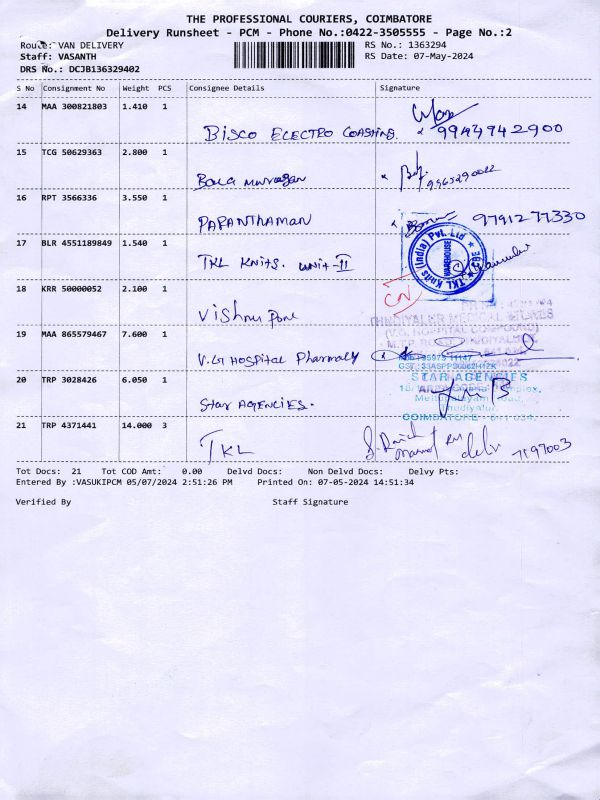 THE PROFESSIONAL COURIERS, COIMBATORE
Delivery Runsheet - PCM - Phone No.:0422-3505555 - Page No.:2
Route: VAN DELIVERY RS No.: 1363294
Staff: VASANTH RS Date: 07-May-2024
DRS No.: DCJB136329402
S No Consignment No Weight PCS Consignee Details Signature
14 MAA 300821803 1.410 1
BISCO ELECTRO COASTING. 9944942900
15 TCG 50629363 2.800 1
Bala murugan 9965290022
16 RPT 3566336 3.550 1
PAPANTHAMAN 9791277330
17 BLR 4551189849 1.540 1
TKL Knits. unit-II
TKL Knits (India) Pvt. Ltd
WAREHOUSE
18 KRR 50000052 2.100 1
Vishnu Pone
CN
19 MAA 865579467 7.600 1
V.G Hospital Pharmacy
20 TRP 3028426 6.050 1
STAR AGENCIES
Star AGENCIES.
COIMBATORE
21 TRP 4371441 14.000 3
TKL
Tot Docs: 21 Tot COD Amt: 0.00 Delvd Docs: Non Delvd Docs: Delvy Pts:
Entered By :VASUKIPCM 05/07/2024 2:51:26 PM Printed On: 07-05-2024 14:51:34
Verified By Staff Signature